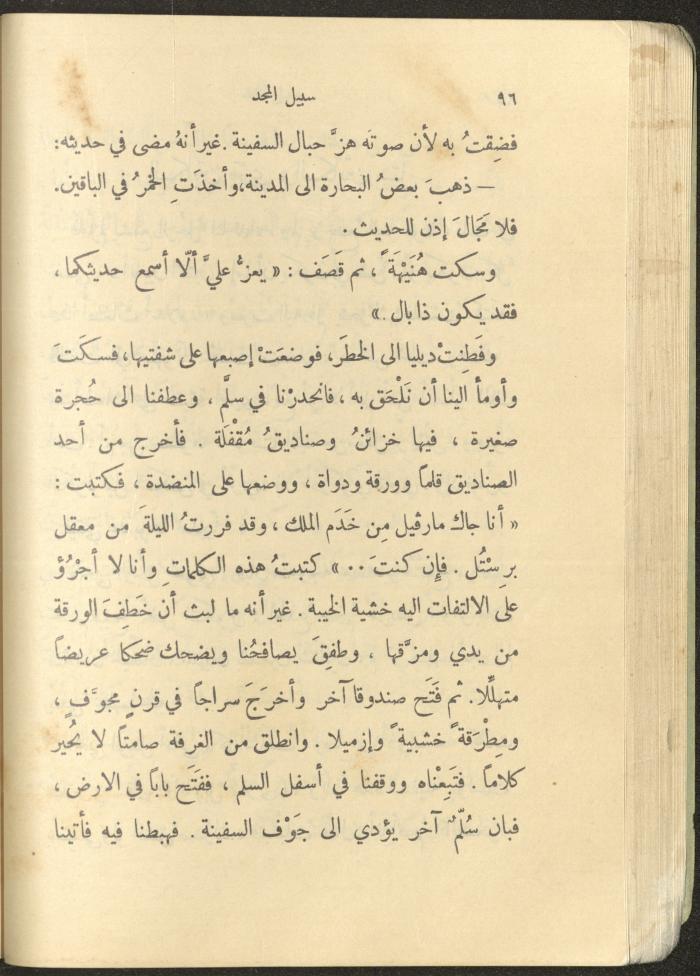 ٩٦
سبيل المجد
فضِقتُ به لأن صوتَه هزَّ حبال السفينة . غير أنهُ مضى في حديثه :
— ذهبَ بعضُ البحارة الى المدينة، وأخذَتِ الخمرُ في الباقين.
فلا مَجَالَ إذن للحديث .
وسكت هُنَيْهَةً ، ثم قَصَف : « يعزُّ عليَّ ألّا أسمع حديثكما ،
فقد يكون ذا بال . »
وفَطِنتْ ديليا الى الخطَر، فوضعَتْ إصبعها على شفتيها، فسكَتَ
وأومأ الينا أن نَلْحَق به ، فانحدرْنا في سلَّم ، وعطفنا الى حُجرة
صغيرة ، فيها خزائنُ وصناديقُ مُقْفَلَة . فأخرج من أحد
الصناديق قلماً وورقة ودواة ، ووضعها على المنضدة ، فكتبت :
« أنا جاك مارڤيل مِن خَدَم الملك ، وقد فررتُ الليلةَ من معقل
برِسْتُل . فإِن كنتَ .. » كتبتُ هذه الكلماتِ وأنا لا أجْرُؤ
على الالتفات اليه خشية الخيبة . غير أنه ما لبث أن خَطِفَ الورقة
من يدي ومزَّقها ، وطفِقَ يصافحُنا ويضحك ضحكا عريضاً
متهلِّلا. ثم فَتَح صندوقا آخر وأخرَجَ سراجاً في قرنٍ مجوَّفٍ ،
ومِطْرَقةً خشبيةً وإزميلا . وانطلق من الغرفة صامتاً لا يُحير
كلاماً . فتَبِعْناه ووقفنا في أسفل السلم ، ففَتَح باباً في الارض ،
فبان سُلَّمٌ آخر يؤدي الى جَوْف السفينة . فهبطنا فيه فأتينا